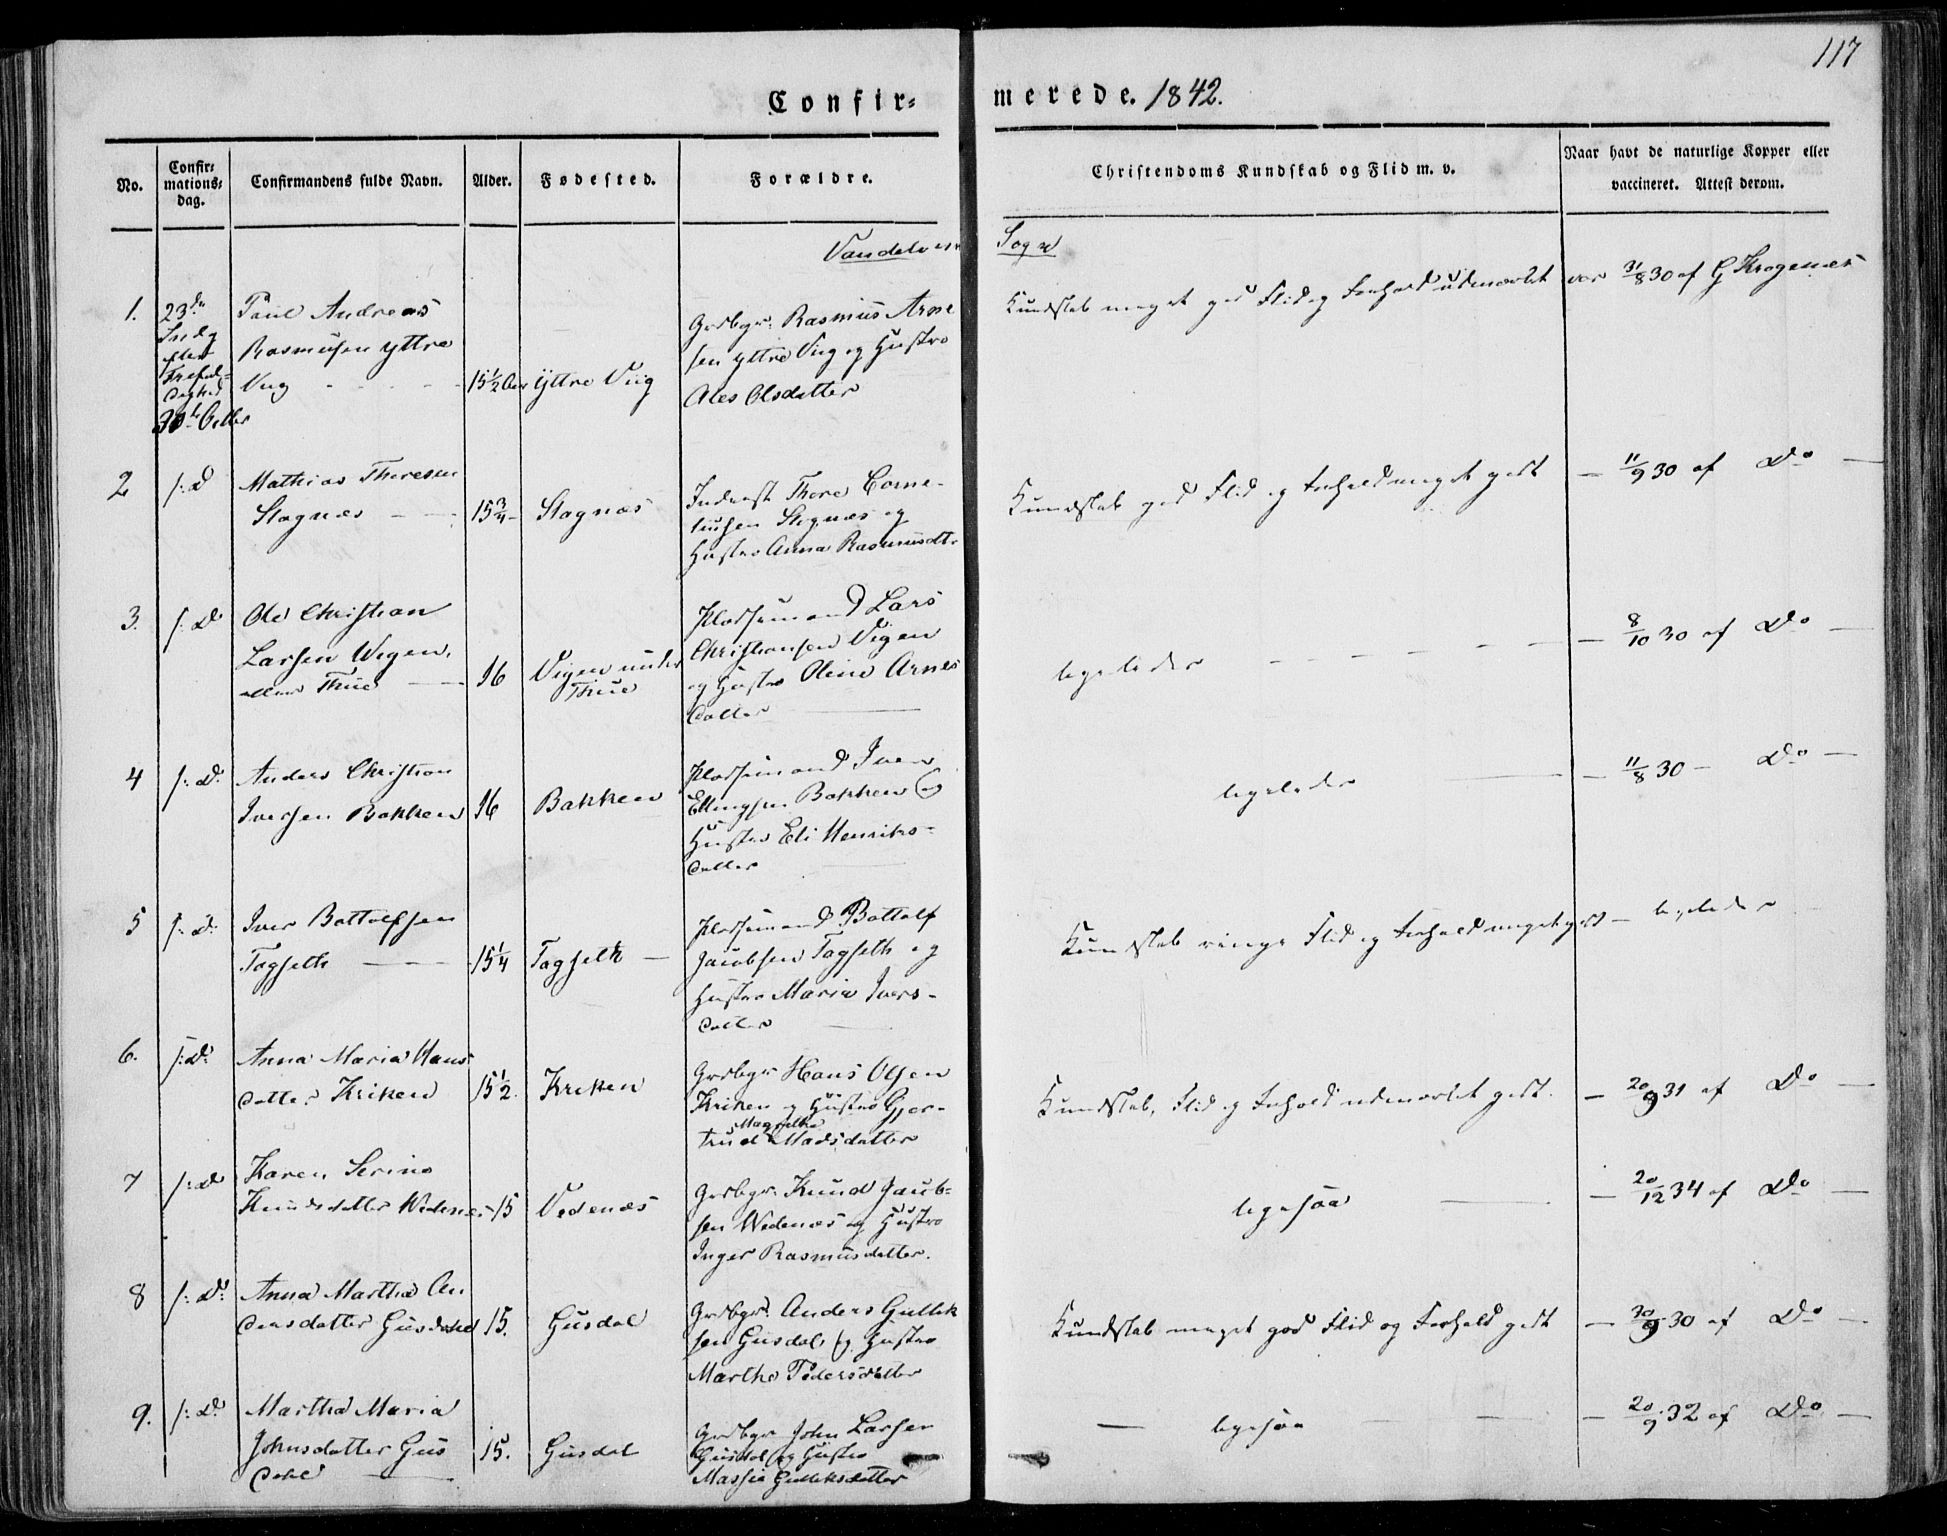 117
Confir- merede. 1842.
No. Confir-mations-dag. Confirmandens fulde Navn. Alder. Fødested. Forældre. Christendoms Kundskab og Flid m. v. Naar havt de naturlige Kopper eller vaccineret. Attest derom.
Sogn
1. 23de
Paul Andreas
Rasmusen Yttre
Viig
15½ Aar
Yttre Viig
Grdbgr. Rasmus Arne
sen Yttre Viig og Hustro
Ales Olsdatter
Kundskab meget god Flid og Forhold udmærket
vac 31/8 30 af G Krogenæs
2 s: D
Mathias Thoresen
Stognæs
15¾
Stognæs
Inderst Thore Corne-
liusen Stognæs og
Hustro Anna Rasmusdtr
Kundskab god Flid og Forhold meget godt
— 11/9 30 af Do —
3. s: D
Ole Christian
Larsen Wigen
Thue
16
Vigen under
Thue
Pladsemand Lars
Christiansen Vigen
og Hustro Oline Arnes
datter
ligeledes
— 8/10 30 af Do —
4 s: D.
Anders Christian
Iversen Bakken
16
Bakken
Pladsemand Iver
Ellingsen Bakken og
Hustro Eli Henriks-
datter
ligeledes
— 11/8 30 — Do —
5 s: D.
Iver Bottolfsen
Tagseth
15¼
Tagseth
Pladsemand Bottolf
Jacobsen Tagseth og
Hustro Marie Ivers-
datter
Kundskab ringe Flid og Forhold meget godt — ligeledes
6. s: D.
Anna Maria Hans
datter Kriken
15½
Kriken
Grdbgr Hans Olsen
Kriken og Hustro Gjer-
trud Magrethe Madsdatter
Kundskab, Flid og Forhold udmærket godt.
— 20/9 31 af Do —
7 s: D
Karen Serine
Knudsdatter Wedenæs
15
Vedenæs
Grdbgr. Knud Jacob-
sen Wedenæs og Hustro
Inger Rasmusdatter.
ligesaa
— 20/12 34 af Do —
8 s: D.
Anna Martha An
dersdatter Gusdahl
15.
Gusdal
Grdbgr. Anders Gullik
sen Gusdal og Hustro
Marthe Pedersdatter
Kundskab meget god Flid og Forhold godt
— 30/9 30 af Do —
9. s: D.
Martha Maria
Johnsdatter Gus
dahl
15.
Gusdal
Grdbgr John Larsen
Gusdal og Hustro
Massie Gulliksdatter
— ligesaa
— 20/9 32 af Do —